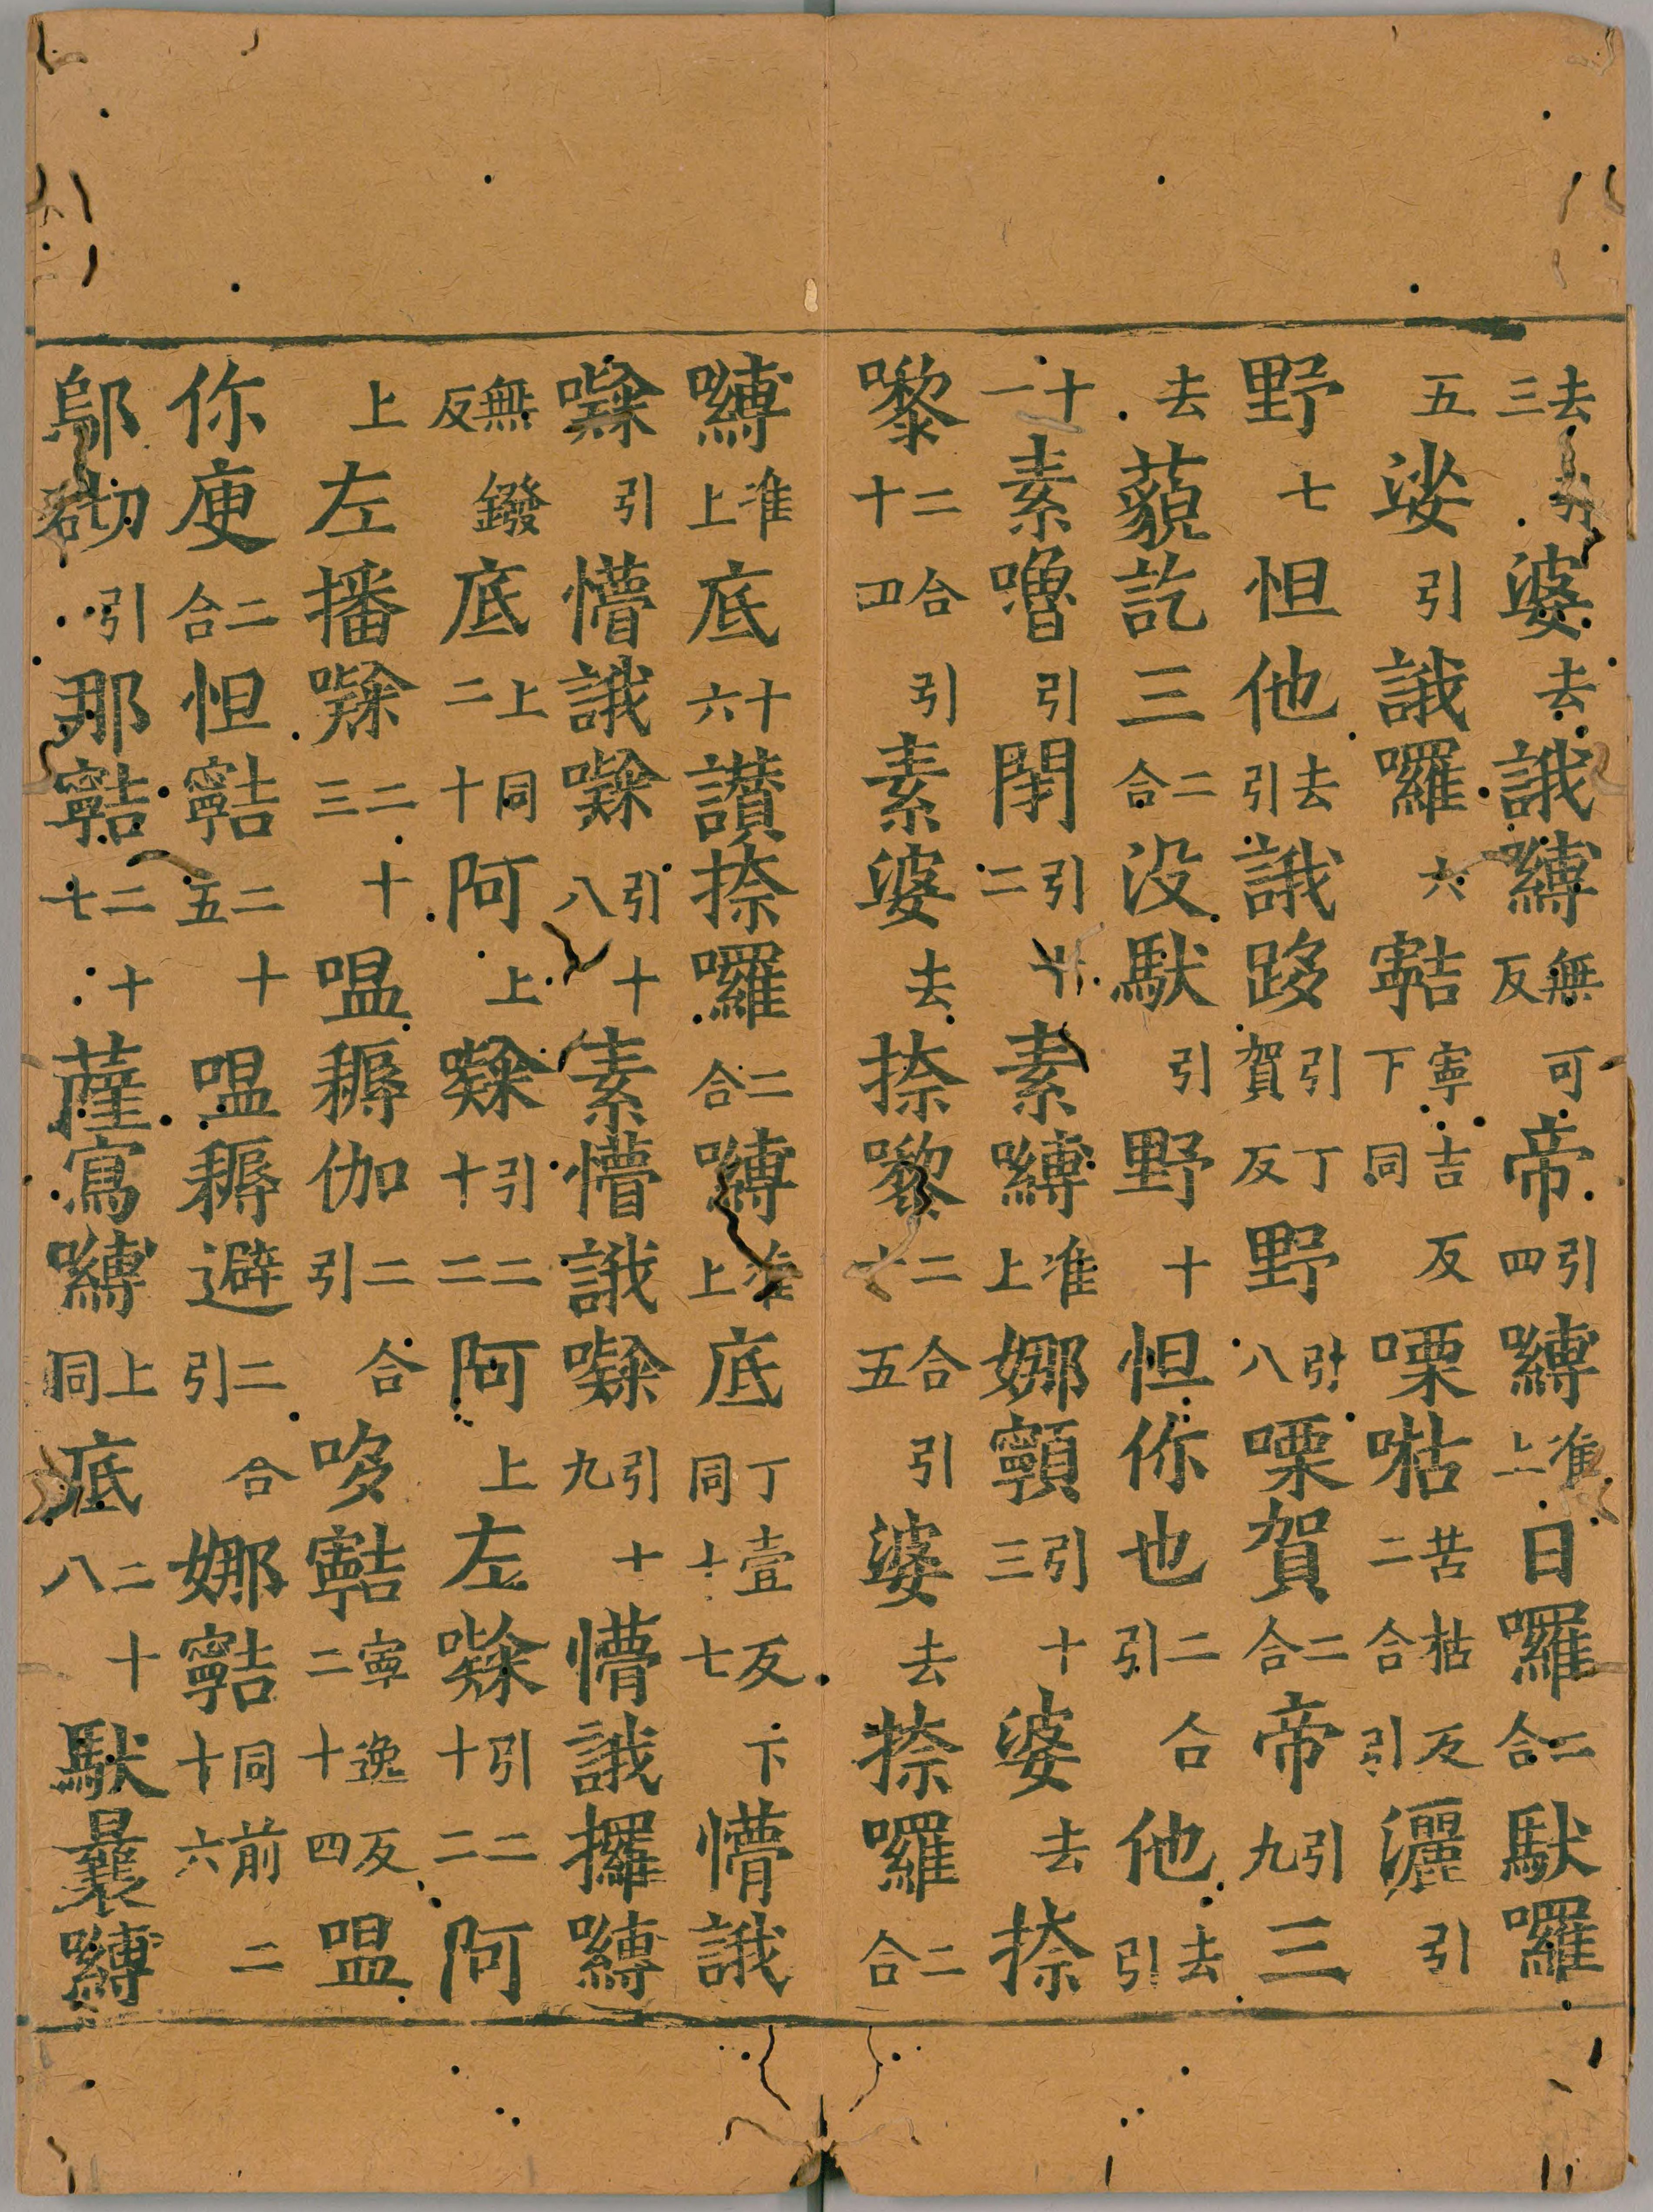 去引三婆去誐嚩無可反帝引四嚩准上日囉二合馱囉
五娑引誐囉六𡫸寧吉反下同㗚苦枯反二合引灑引
野七怛他去引誐跢引丁賀反野引八㗚賀二合帝引九三
去藐訖三二合没馱引野十怛你也二合引他去引
十一素嚕引閉引十二素嚩准上娜𩕳引十三婆去捺
㘑二合引十四素婆去捺㘑二合引十五婆去捺囉二合
嚩准上底十六讃捺囉二合嚩准上底丁壹反下同十七懵誐
引懵誐引十八素懵誐引十九懵誐攞嚩
無鏺反底上同二十阿上引二十二阿上左引二十二阿
上左播二十三嗢耨伽二合引哆𡫸寧逸反二十四嗢
你庾二合怛𡫸二十五嗢耨避二合引娜𡫸同前二十六
鄔砌引那𡫸二十七薩寫嚩上同底二十八馱曩嚩